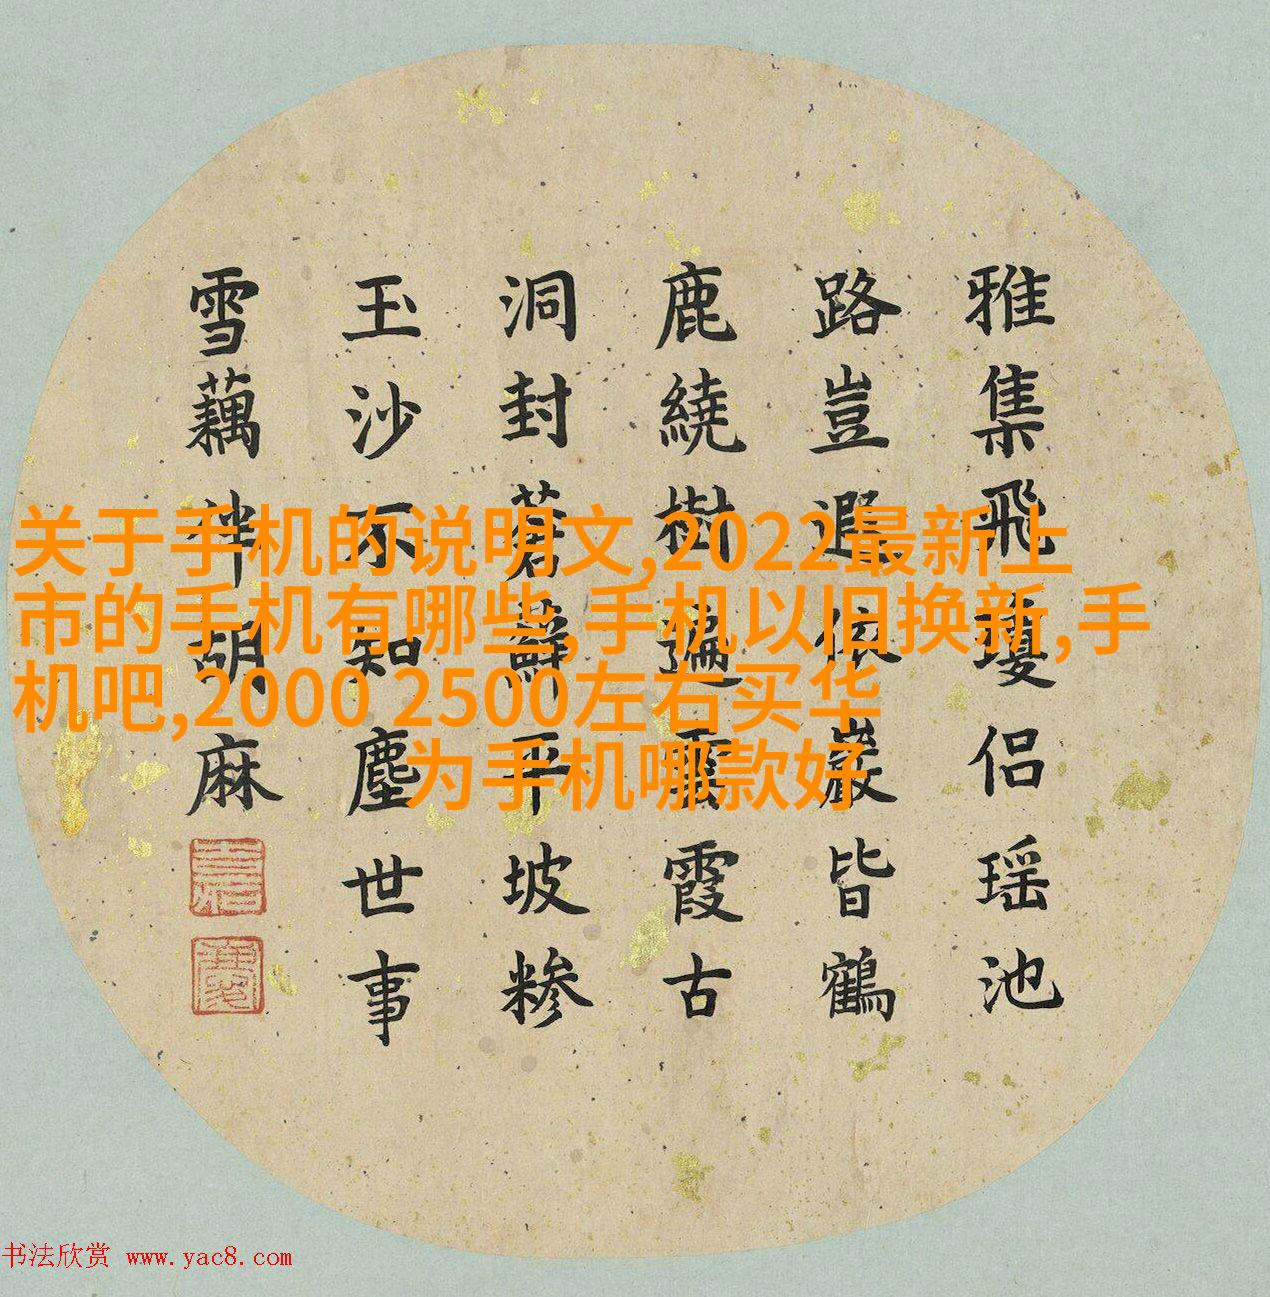 雅集飛瓊侶瑶池
路豈遐依巖皆鶴
鹿繞樹遍雲霞古
洞封蒼蘚平坡糝
玉沙不知塵世事
雪藕拌胡麻
关于手机的说明文,2022最新上
市的手机有哪些,手机以旧换新,手
机吧,2000 2500左右买华
为手机哪款好
书法欣赏 www.yac8.com